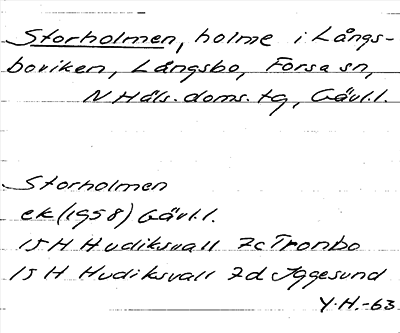 Storholmen, holme i Långs-
boviken, Långsbo, Forsa sn,
N Häls. doms. tg, Gävl.l.
Storholmen
ek (1958) Gävl.l.
15 H Hudiksvall 7c Tronbo
15 H Hudiksvall 7d Iggesund
Y.H.-63